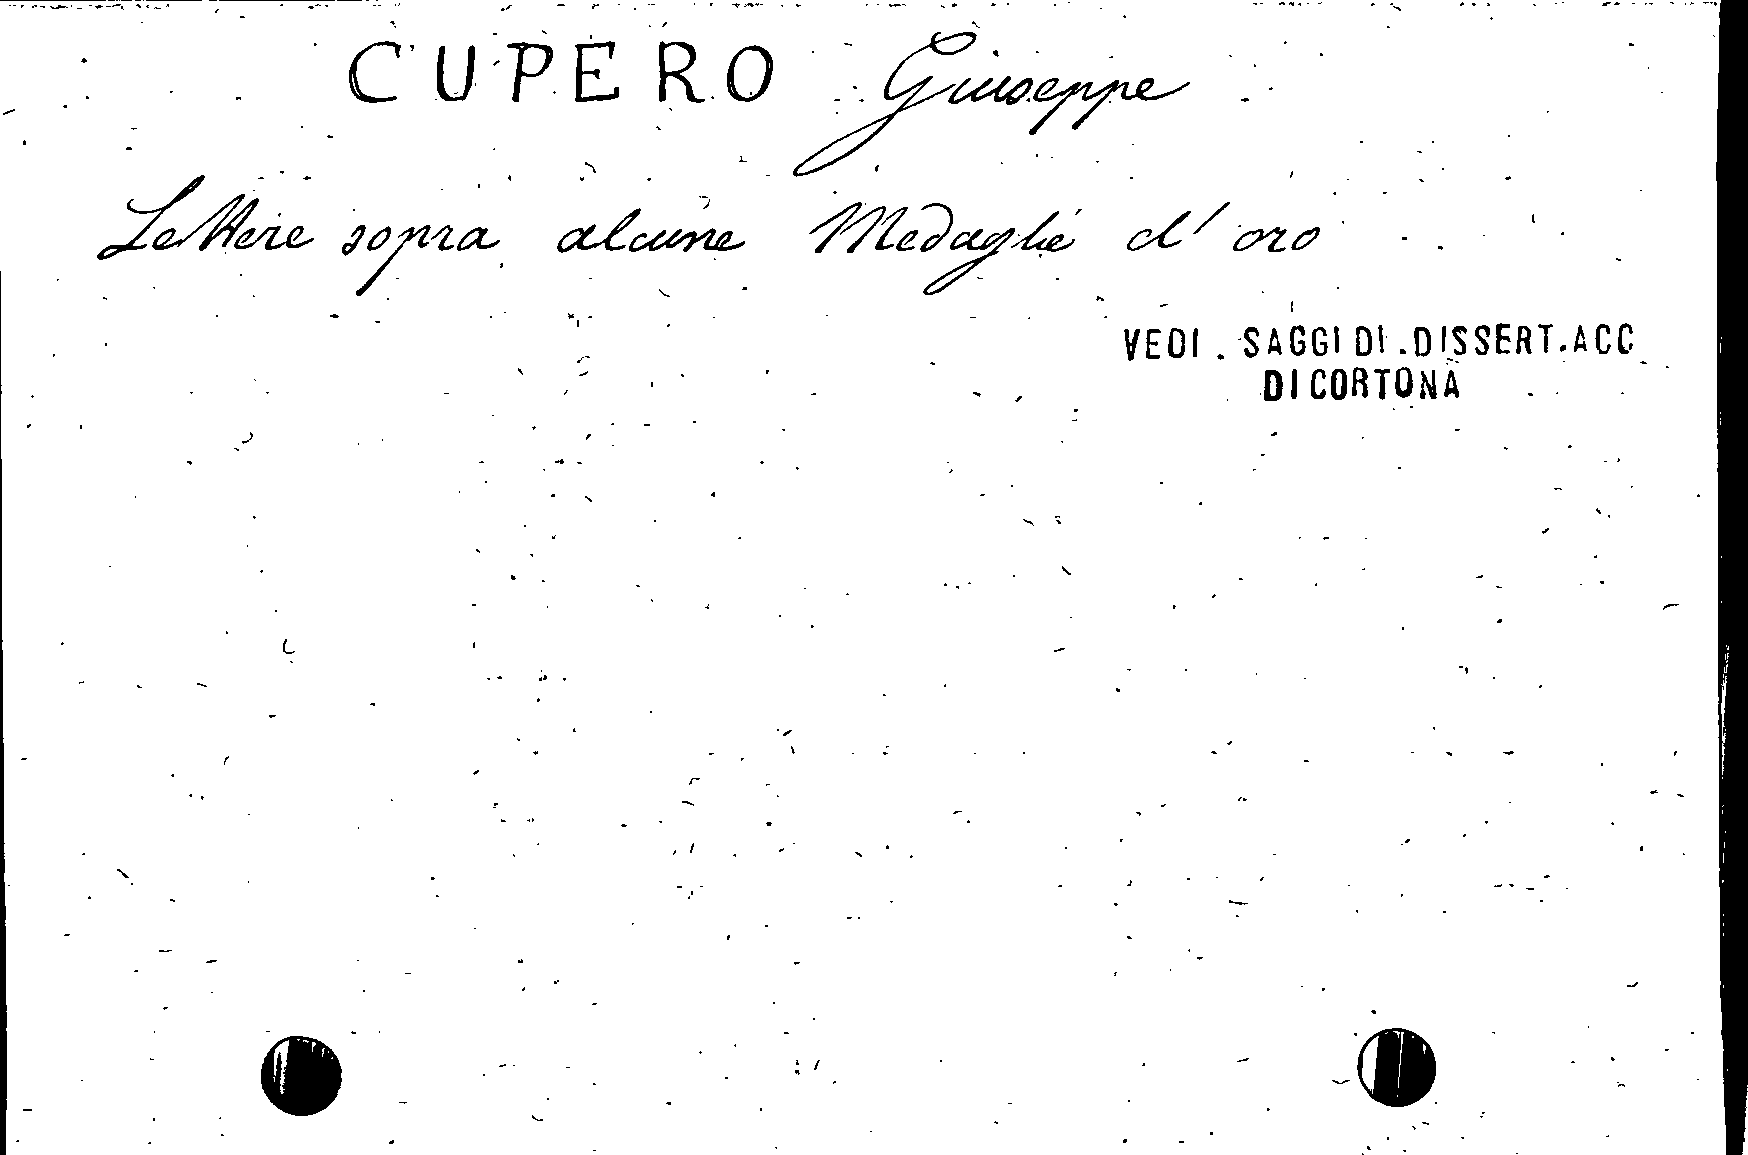 CUPERO Giuseppe
Lettere sopra alcune Medaglie d'oro
VEDI . SAGGI DI . DISSERT. ACC
DI CORTONA